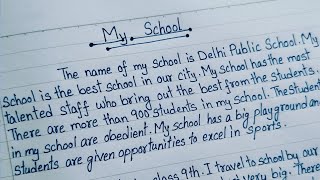 My School
The name of my school is Delhi Public School. My
School is the best school in our city. My school has the most
talented staff who bring out the best from the students.
There are more than 900 students in my school. The student
in my school are obedient. My school has a big playground an
students are given opportunities to excel in sports.
class 9th. I travel to school by our
very big. There